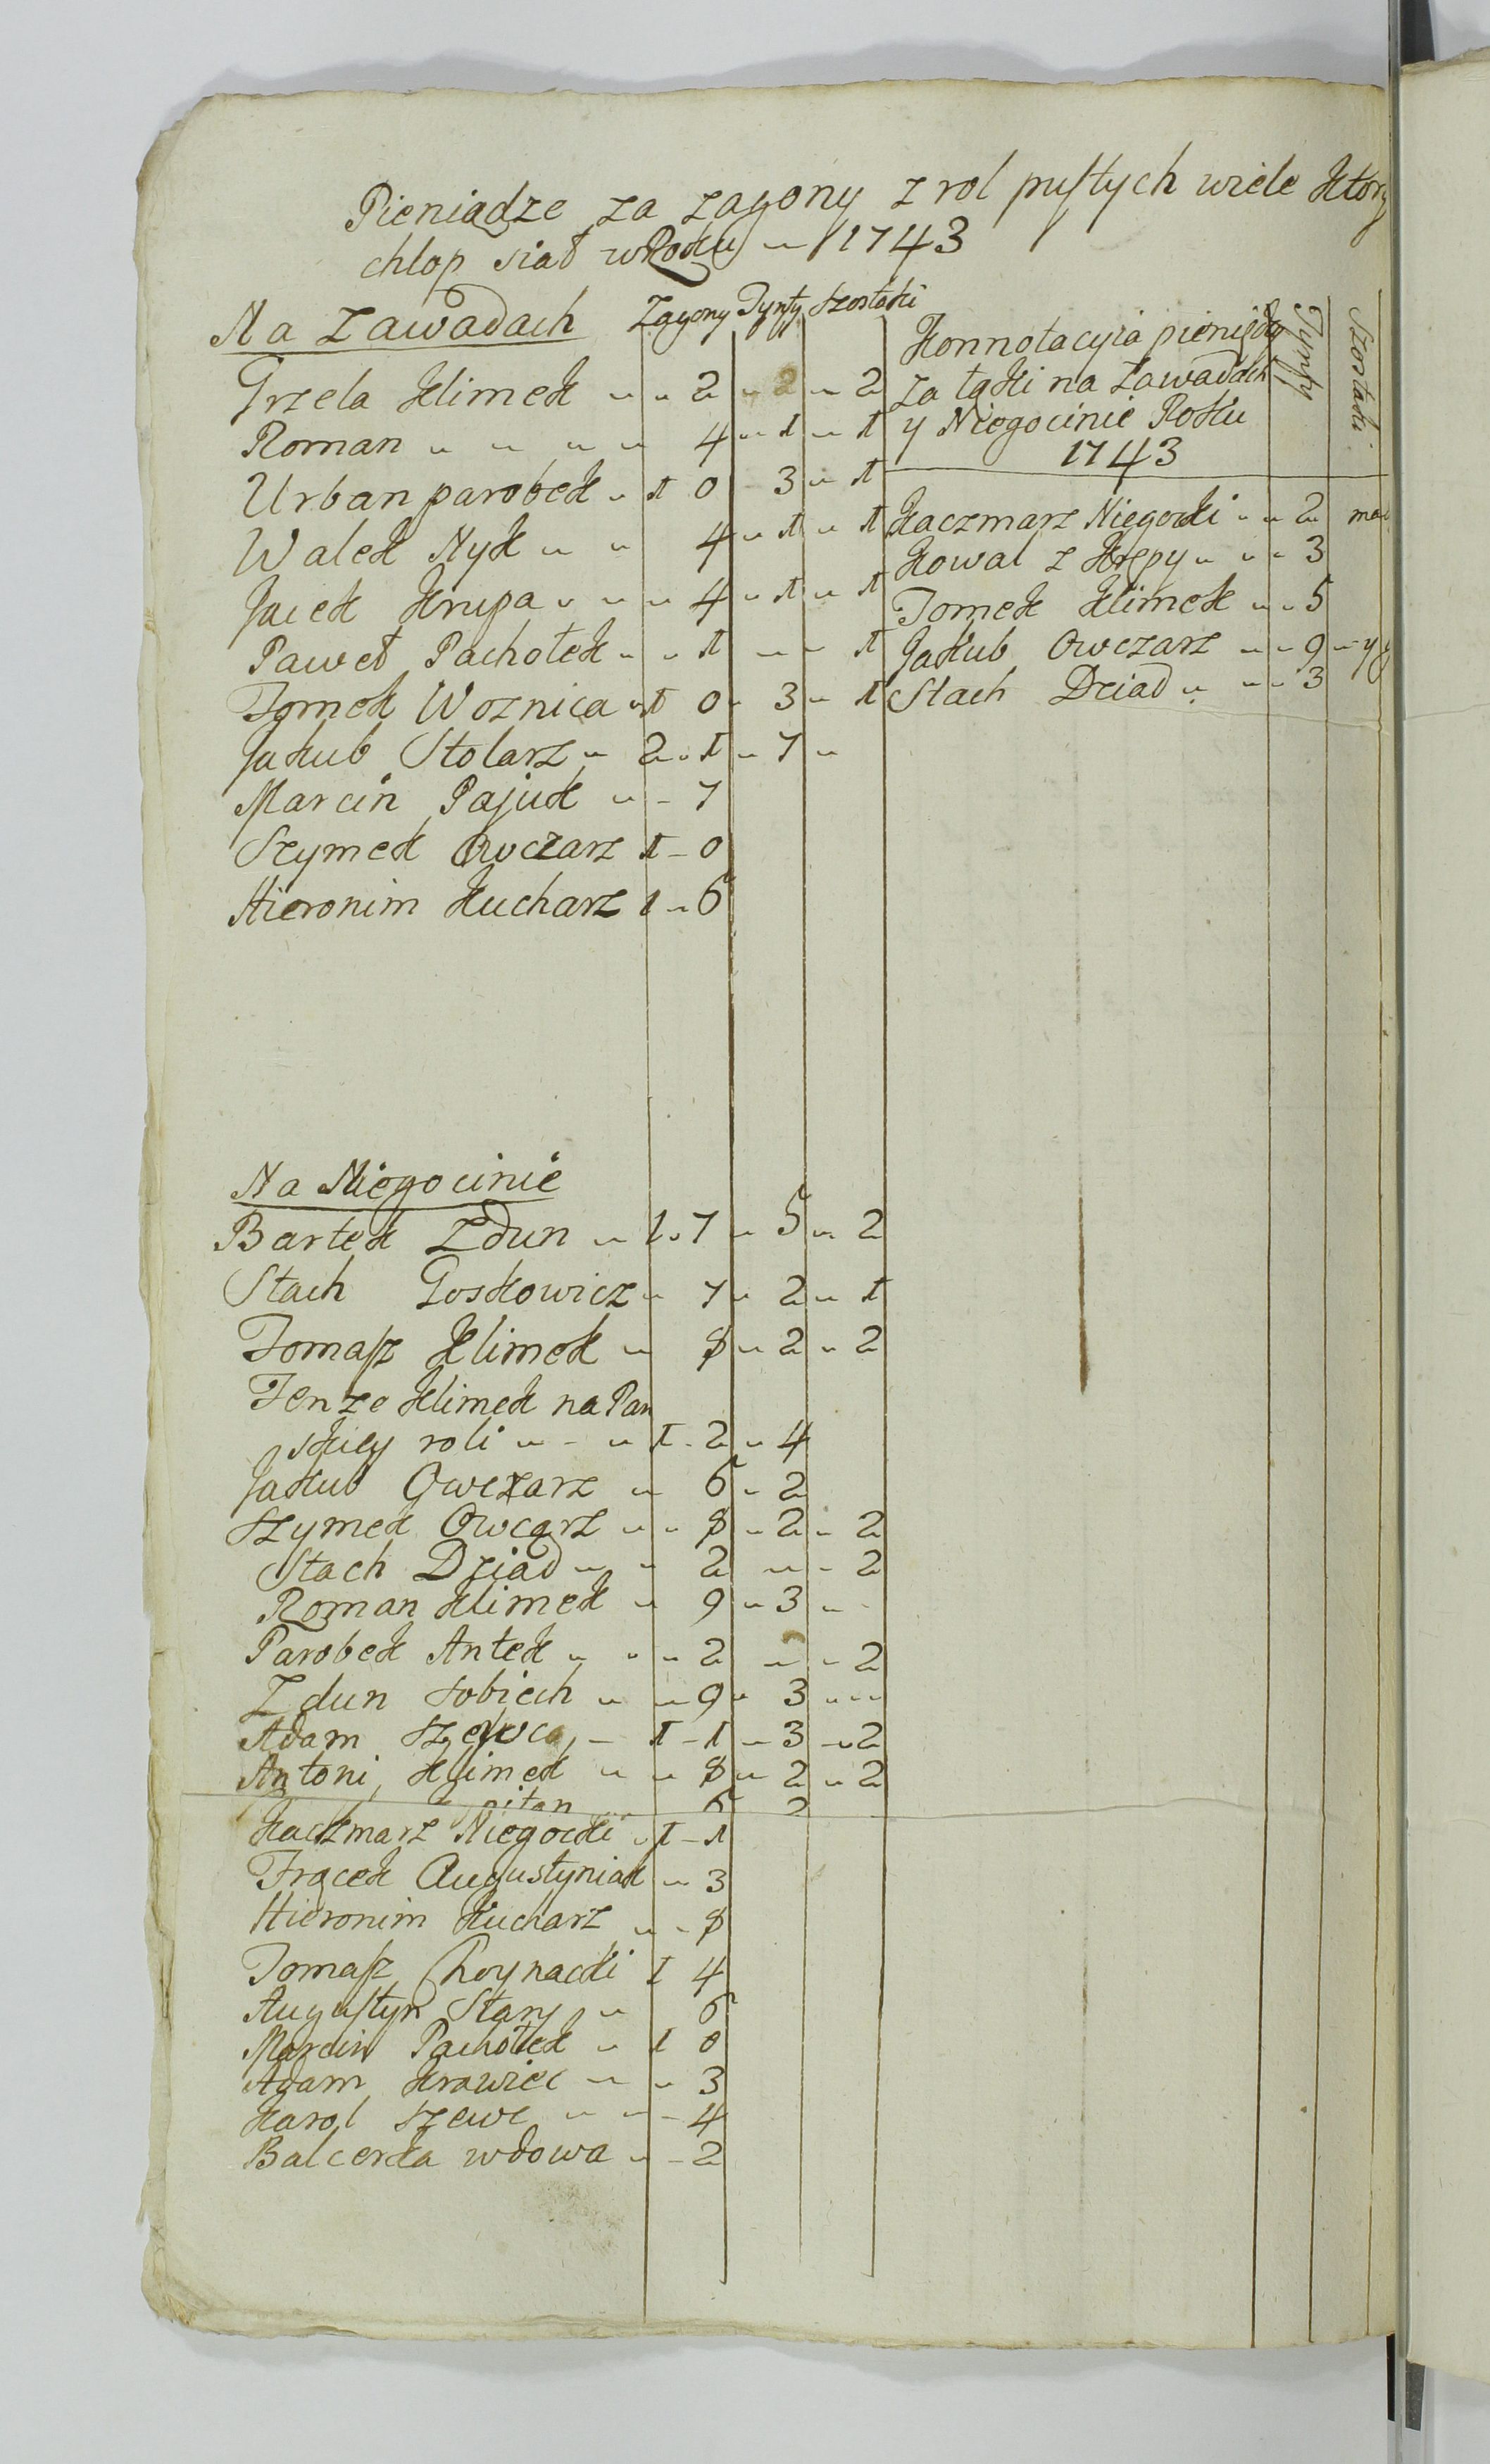 Pieniądze za zagony z rol pustych wiele ktory
chłop siał w Roku 1743
Na Zawadach Zagony Tynfy Szostaki
Grzela Klimek 2 2 2
Roman 4 1 1
Urban parobek 1 0 3 1
Walek Nyk 4 1 1
Jacek Krupa 4 1 1
Paweł Pachołek 1 1
Tomek Woznica 1 0 3 1
Jakub Stolarz 2 1 7
Marcin Pajuk 7
Szymek Owczarz 1 0
Hieronim Kucharz 1 6
Konnotacyia pieniędzy
za łąki na Zawadach
y Niegocinie Roku
1743
Tynfy
Szostaki
Kaczmarz Niegocki 2
Kowal z Krępy 3
Tomek Klimek 5
Jakub Owczarz 9
Stach Dziad 3
Na Niegocinie
Bartek Zdun 1 7 5 2
Stach Goskowicz 7 2 1
Tomasz Klimek 8 2 2
Tenze Klimek na Pan
skiey roli 1 2 4
Jakub Owczarz 6 2
Szymek Owcarz 8 2 2
Stach Dziad 2 2
Roman Klimek 9 3
Parobek Antek 2 2
Zdun Sobiech 9 3
Adam Szewca 1 1 3 2
Antoni Klimek 8 2 2
6 2
Kaczmarz Niegocki 1 1
Frącek Augustyniak 3
Hieronim Kucharz 8
Tomasz Choynacki 1 4
Augustyn Stary 6
Marcin Pachołek 1 0
Adam Krawiec 3
Karol Szewc 4
Balcerka wdowa 2